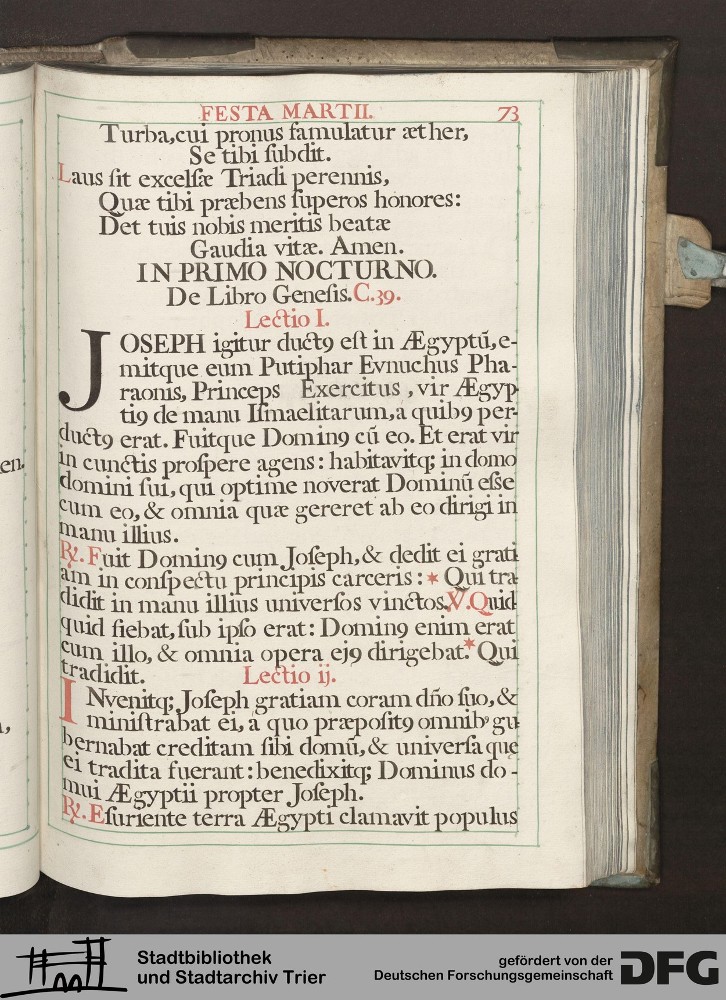 FESTA MARTII. 73
Turba, cui pronus famulatur æther,
Se tibi ſubdit.
Laus ſit excelſæ Triadi perennis,
Quæ tibi præbens ſuperos honores:
Det tuis nobis meritis beatæ
Gaudia vitæ. Amen.
IN PRIMO NOCTURNO.
De Libro Geneſis. C. 39.
Lectio I.
JOSEPH igitur duct9 eſt in Ægyptū, e-
mitque eum Putiphar Evnuchus Pha-
raonis, Princeps Exercitus, vir Ægyp
ti9 de manu Iſmaelitarum, a quib9 per-
duct9 erat. Fuitque Domin9 cū eo. Et erat vir
in cunctis proſpere agens: habitavitq; in domo
domini ſui, qui optime noverat Dominū eſſe
cum eo, & omnia quæ gereret ab eo dirigi in
manu illius.
℟. Fuit Domin9 cum Joſeph, & dedit ei grati
am in conſpectu principis carceris: * Qui tra
didit in manu illius univerſos vinctos. ℣. Quid
quid fiebat, ſub ipſo erat: Domin9 enim erat
cum illo, & omnia opera ej9 dirigebat. * Qui
tradidit. Lectio ij.
INvenitq; Joſeph gratiam coram dño ſuo, &
miniſtrabat ei, a quo præpoſit9 omnib9 gu
bernabat creditam ſibi domū, & univerſa que
ei tradita fuerant: benedixitq; Dominus do-
mui Ægyptii propter Joſeph.
℟. Eſuriente terra Ægypti clamavit populus
en.
Stadtbibliothek
und Stadtarchiv Trier
gefördert von der
Deutschen Forschungsgemeinschaft
DFG